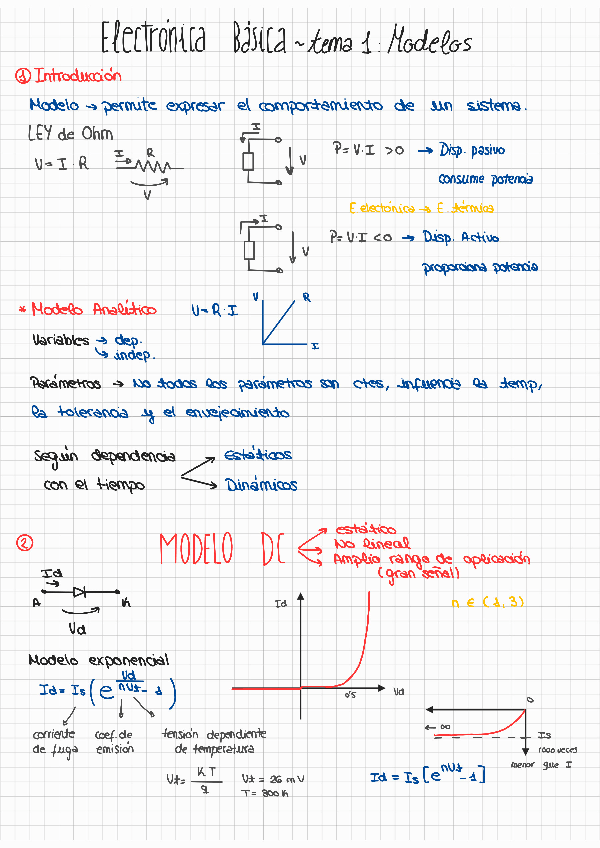 Electrónica Básica ~ tema 1: Modelos
① Introducción
Modelo → permite expresar el comportamiento de un sistema.
LEY de Ohm
V = I · R
I R
V
I
V
P = V · I > 0 → Disp. pasivo
consume potencia
E electrónica → E. térmica
I
V
P = V · I < 0 → Disp. Activo
proporciona potencia
* Modelo Analítico
V = R · I
V R
I
Variables → dep.
↳ indep.
Parámetros → No todos los parámetros son ctes, influencia la temp,
la tolerancia y el envejecimiento
Según dependencia
con el tiempo
Estáticos
Dinámicos
②
MODELO DC
estático
No lineal
Amplio rango de aplicación
(gran señal)
Id
A K
Vd
Id
0'5 Vd
n ∈ (1, 3)
Modelo exponencial
Id = Is ( e^(Vd/nVt) - 1 )
corriente
de fuga
coef. de
emisión
tensión dependiente
de temperatura
Vt = KT/q
Vt = 26 mV
T = 300 K
0
← ∞
Is
1000 veces
menor que I
Id = Is [ e^(nVt) - 1 ]